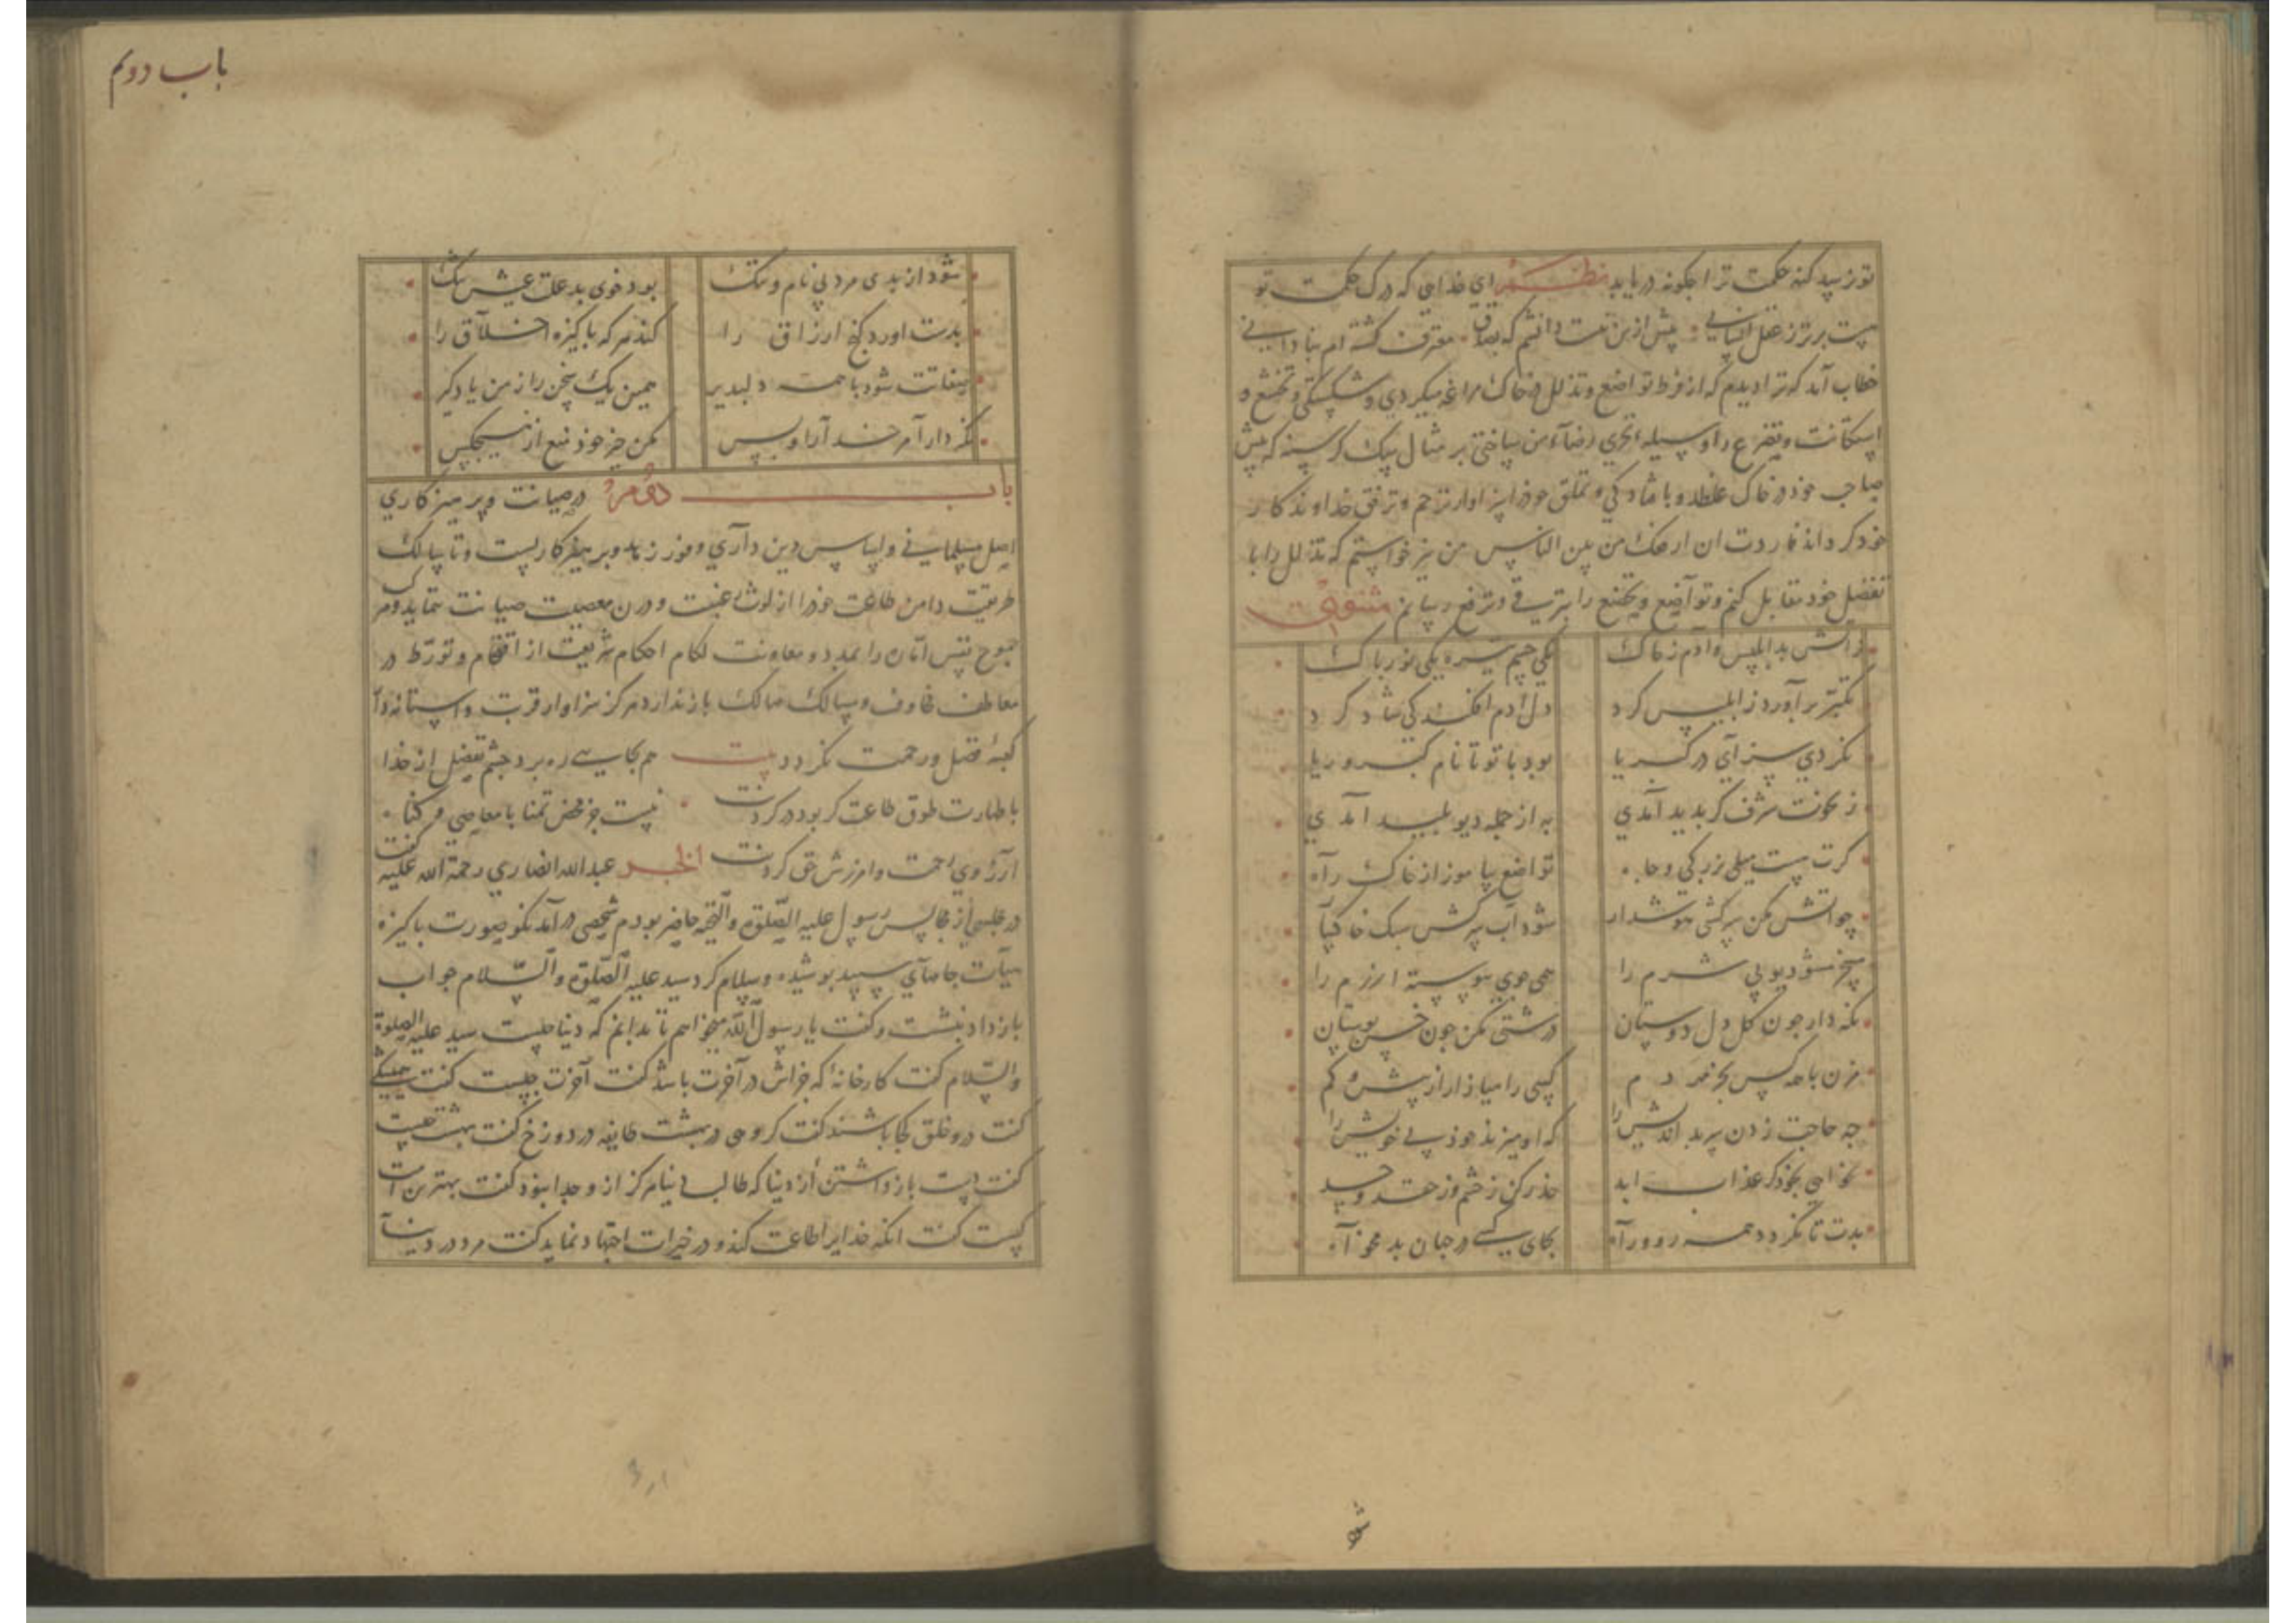 تو نرسید کنه حکمت ترا چگونه دریابد نظم ای خدایی که درک حکمت تو
برتر ز عقل انسانی پیش ازین دانشم که بود معترف گشته ام بنادانی
خطاب آمد که ترا دیدم که از فرط تواضع و تذلل در خاک مراغه میکردی و شکستگی و تخشع و
استکانت و تضرع را وسیله تحری رضاء من ساختی بر مثال سک کرسنه که پیش
صاحب خود در خاک غلطد و با و تملق خود را سزاوار ترحم و ترفق خداوندکار
خود کرداند فاردت ان ارفعک من بین الناس من نیز خواستم که تذلل را با
تفضل خود مقابل کنم و تواضع و تخشع را بترقی و ترفع رسانم مثنوی
ز آتش بد ابلیس و آدم ز خاک یکی جسم تیره یکی نور پاک
تکبر برآورد ز ابلیس کرد دل آدم افکندکی شاد کرد
نکردی سزای در کبریا بود با تو تا نام کبر و ریا
ز کونت شرف کر بدید آمدی به از جمله دیو پلید آمدی
کرت هست میلی بزرکی و جاه تواضع بیاموز از خاک راه
چو آتش مکن سرکشی هوشدار شود آب سرکش سبک خاکسار
مسخر شود دیو بی شرم را همی جوی پیوسته آزرم را
نکه دار چون کل دل دوستان درشتی مکن چون خس بوستان
مزن با همه کس بجز نرم دم کسی را میازار از بیش و کم
چه حاجت زدن بر بد اندیش را که او میزند خود پی خویش را
نخواهی بخود کر عذاب ابد حذر کن ز خشم و ز حقد و حسد
بدت تا نکردد همه رو و راه بجای کسی در جهان بد مخواه
باب دوم
شود از بدی مرد بی نام و ننک بود خوی بد علت عیش تنک
بدست آورد کنج ارزاق را کند هر که پاکیزه اخلاق را
صفاتت شود با همه دلپذیر همین یک سخن را ز من یاد کیر
نکردار آمر خدا را و بس مکن جز خود منع از هیچکس
باب دوم در صیانت و پرهیزکاری
اصل مسلمانی و اساس دین داری و زهد و پرهیزکاریست و تا سالک
طریقت دامن طاعت خود را از لوث غیبت و درن معصیت صیانت ننماید و مرکب
جموح نفس اماره را بمدد و معاونت لکام احکام شریعت از اقتحام و تورط در
معاطف مخاوف و مسالک مهالک باز ندارد هرکز سزاوار قربت و آستانه دار
کعبه فضل و رحمت نکردد بیت هر کجا سی ره برد بچشم تفضل از خدا
با طهارت طوق طاعت کر بود در کردنت نیست جز محض تمنا با معاصی و کناه
آرزوی رحمت و امرزش حق کردنت الخبر عبدالله انصاری رحمة الله علیه کفت
در مجلسی از مجالس رسول علیه الصلوة والتحیه حاضر بودم شخصی در آمد نکو صورت پاکیزه
هیأت جامهای سپید پوشیده و سلام کرد سید علیه الصلوة والسلام جواب
باز داد بنشست و کفت یا رسول الله میخواهم تا بدانم که دنیا چیست سید علیه الصلوة
والسلام کفت کارخانه که جزاش در آخرت باشد کفت آخرت چیست کفت
کفت درو خلق کجا باشند کفت کروهی در بهشت طایفه در دوزخ کفت بهشت چیست
کفت دست بازداشتن از دنیا که طالب دنیا هرکز از وجدا بنود کفت بهترین امت
کیست کفت آنکه خدایرا طاعت کند و در خیرات اجتهاد نماید کفت مرد در دنیا